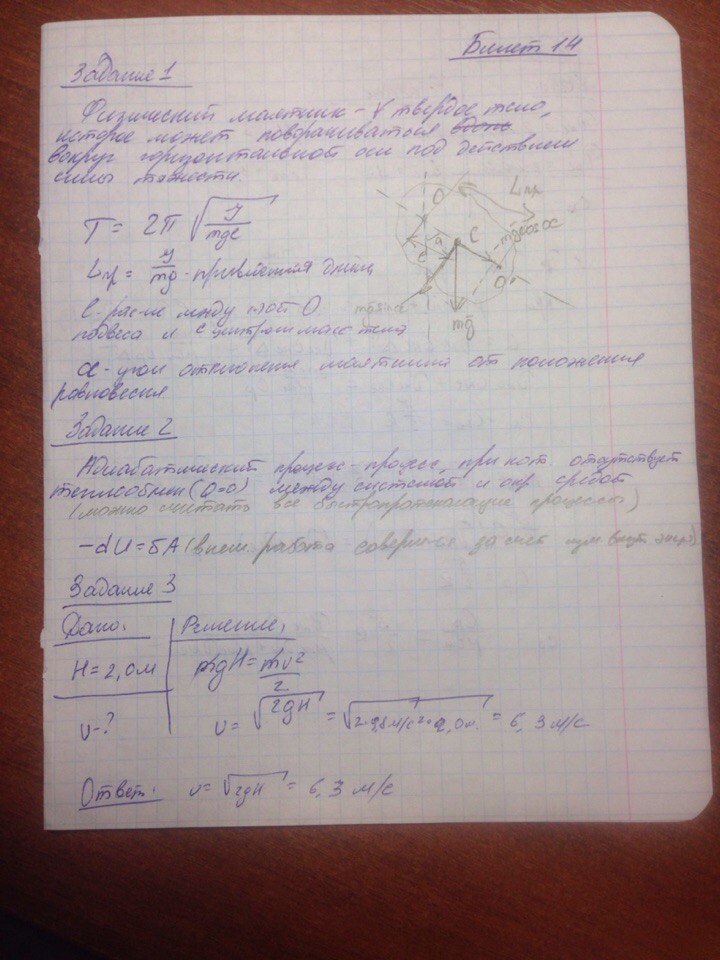 Билет 14
Задание 1
Физический маятник - ∀ твердое тело,
которое может поворачиваться
вокруг горизонтальной оси под действием
силы тяжести.
T = 2π √(J/mgl)
Lпр = J/ml - приведенная длина
l - расст между точкой O
подвеса и C центром масс тела
O
Lпр
α
C
mg cos α
O'
mg sin α
mg
α - угол отклонения маятника от положения
равновесия
Задание 2
Адиабатический процесс - процесс, при кот. отсутствует
теплообмен (Q=0) между системой и окр. средой
(можно считать все быстропротекающие процессы)
-dU = δA (внеш. работа соверш за счет изм внут энерг)
Задание 3
Дано:
Решение:
H = 2,0м
mgH = mv²/2
v - ?
v = √2gH = √2·9,8м/с²·2,0м = 6,3 м/с
Ответ: v = √2gH = 6,3 м/с